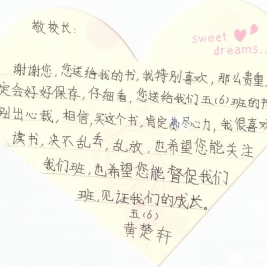 敬校长:
sweet
dreams...
谢谢您,您送给我的书,我特别喜欢,那么贵重
定会好好保存,仔细看,您送给我们五(6)班的书
别出心裁,相信,买这个书,肯定费尽心力,我很喜欢
读书,决不乱丢,乱放,也希望您能关注
我们班,也希望您能督促我们
班,见证我们的成长。
五(6)
黄楚轩